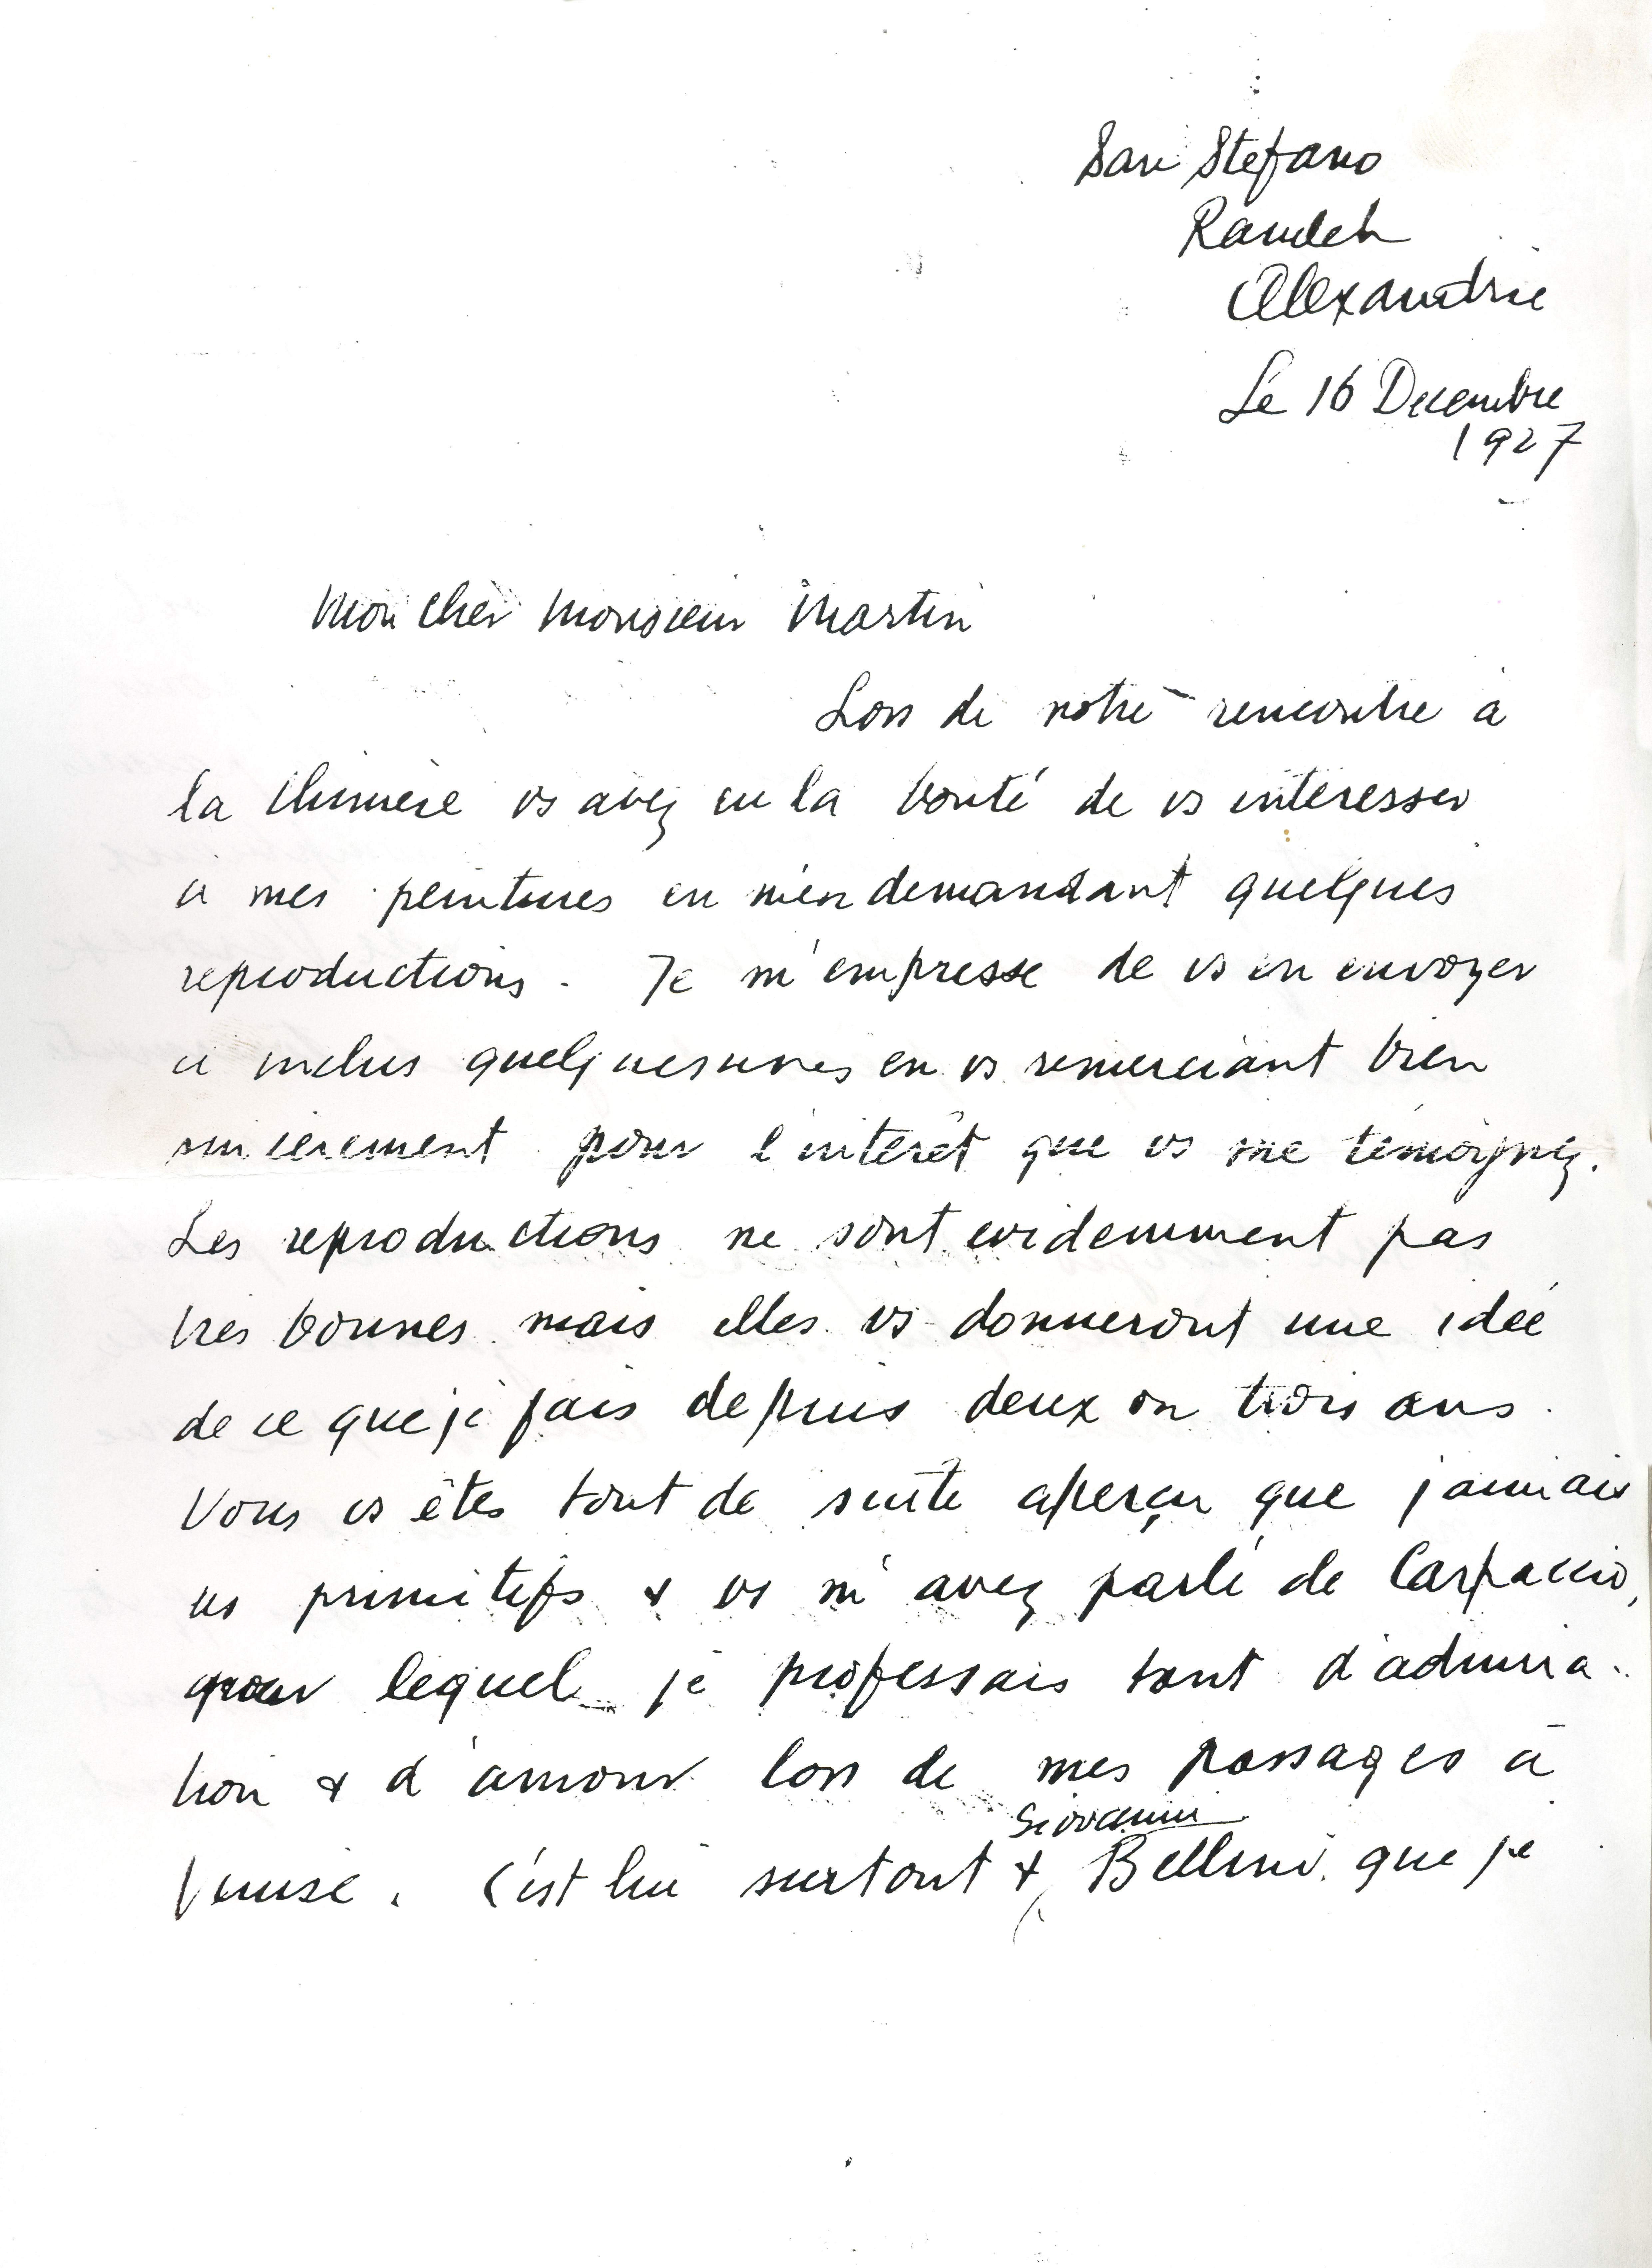 San Stefano
Ramleh
Alexandrie
Le 16 Decembre
1927
Mon cher Monsieur Martin
Lors de notre rencontre à
la Chimère vs avez eu la bonté de vs intéresser
à mes peintures en m'en demandant quelques
reproductions. Je m'empresse de vs en envoyer
ci inclus quelques unes en vs remerciant bien
sincèrement pour l'intérêt que vs me témoignez.
Les reproductions ne sont evidemment pas
très bonnes mais elles vs donneront une idée
de ce que je fais depuis deux ou trois ans.
Vous vs êtes tout de suite aperçu que j'aimais
les primitifs & vs m'avez parlé de Carpaccio,
pour lequel je professais tant d'admira-
tion & d'amour lors de mes passages à
Venise. C'est lui surtout & Giovanni Bellini que je